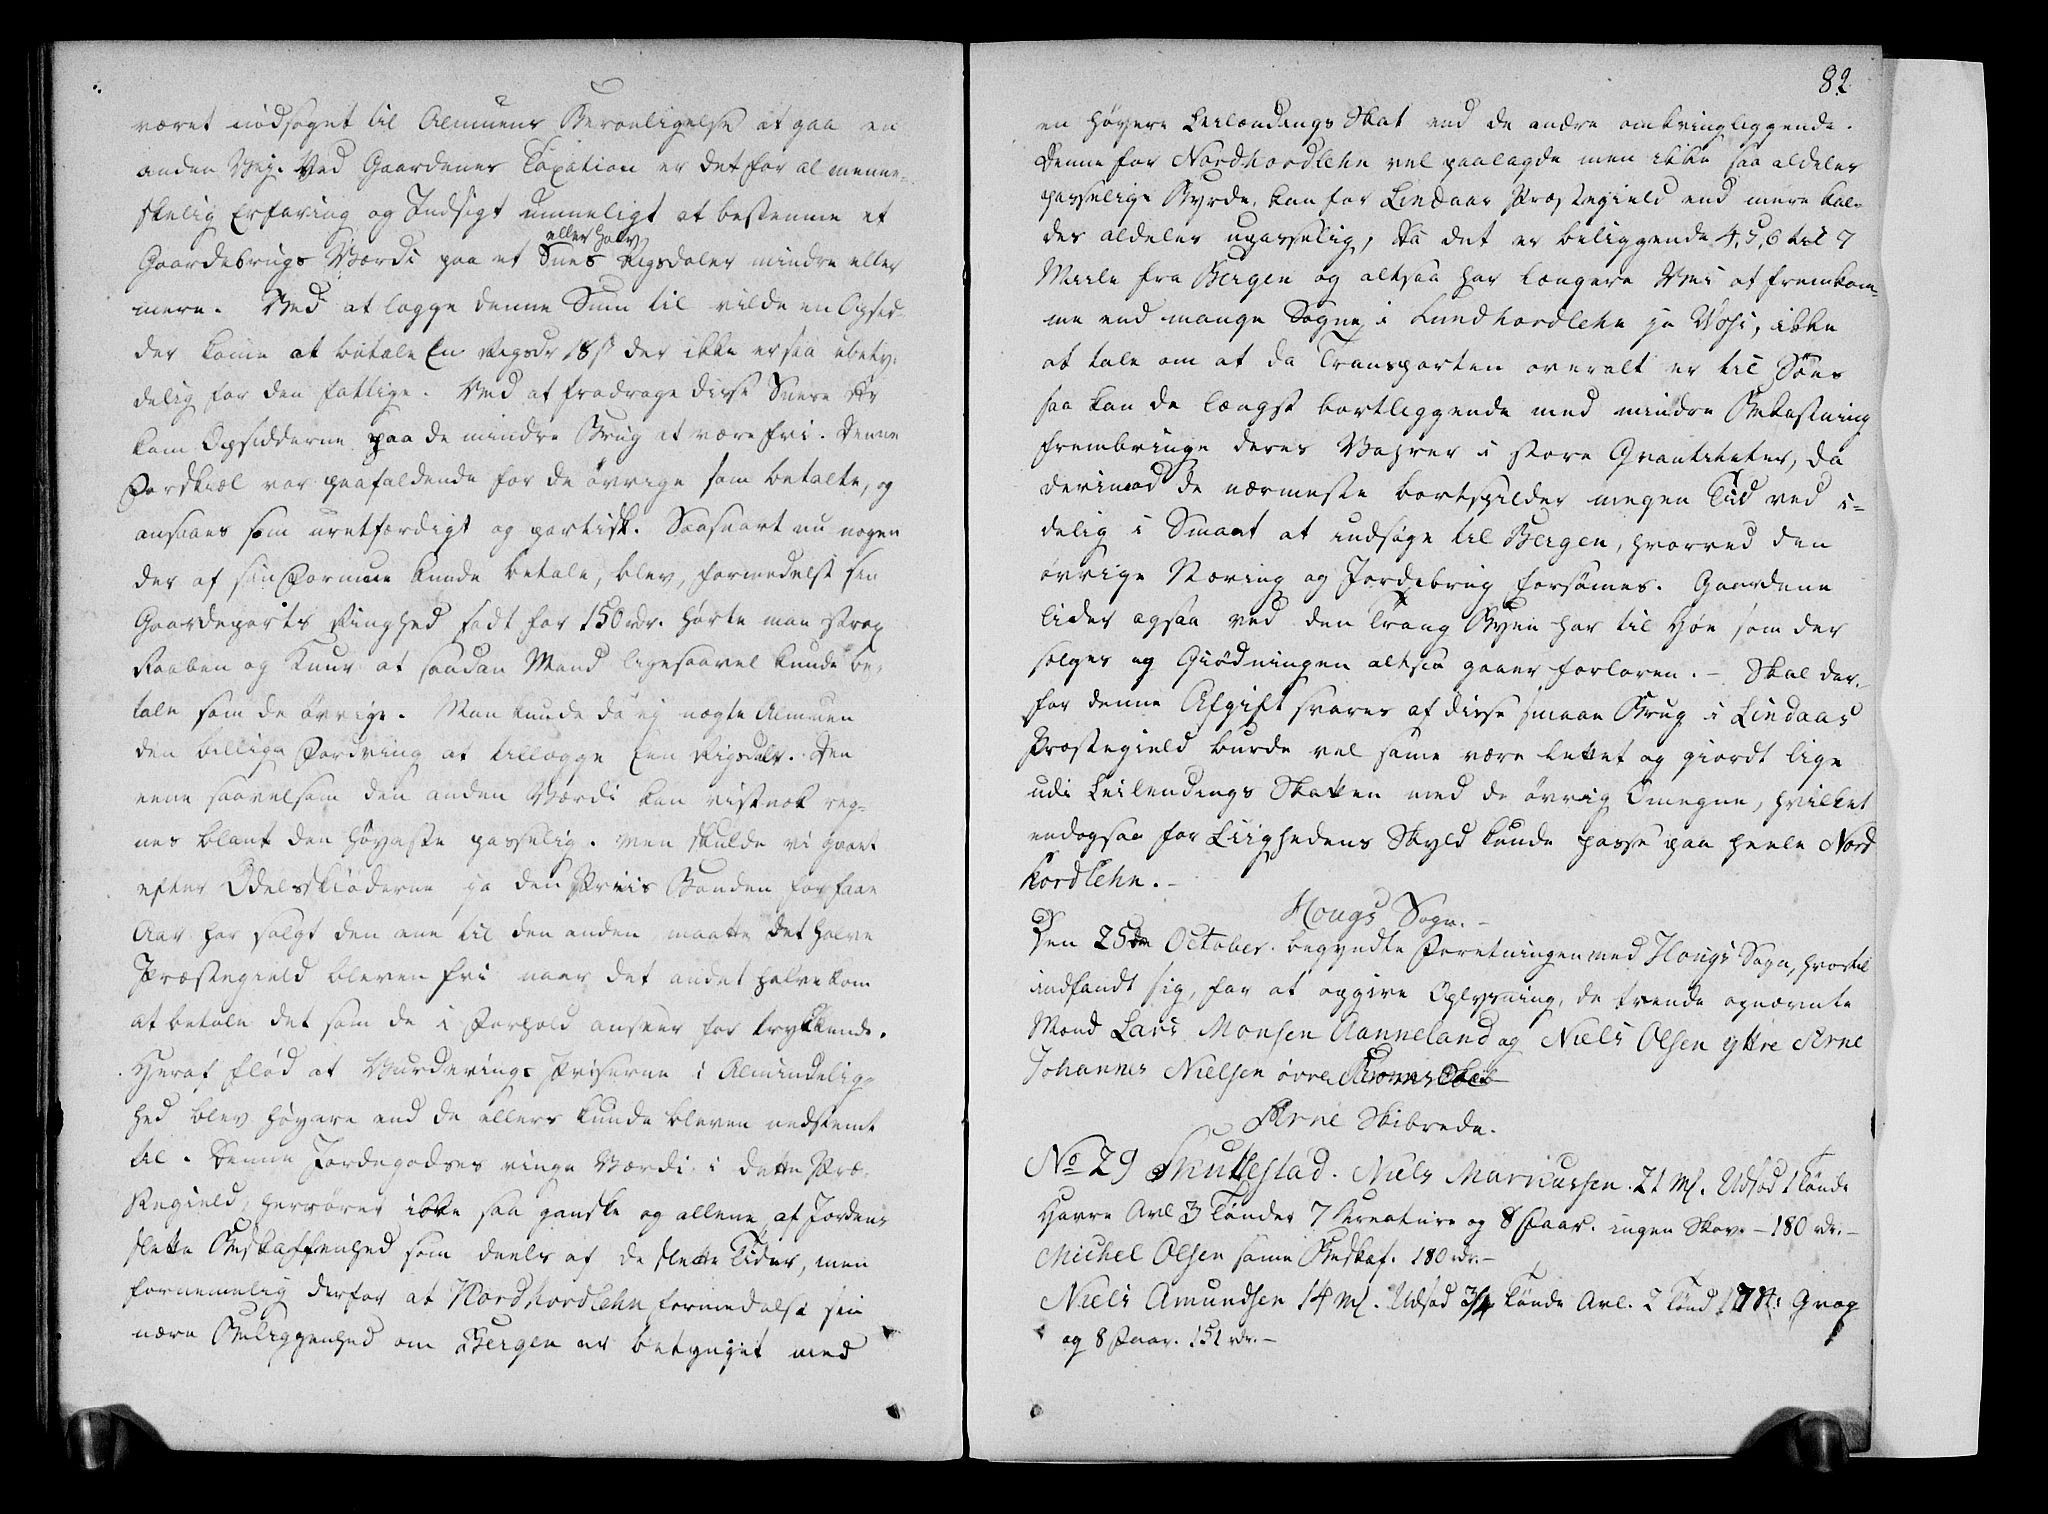 været nødsaget til Almuens Beroeligelse at gaa en
anden Vej. Ved Gaardenes Taxation er det for al menne-
skelig Erfaring og Indsigt umueligt at bestemme et
Gaardebrugs Værdi paa et Snees eller halv Rigsdaler mindre eller
mere. Ved at lægge denne Sum til vilde en Opsid-
der komme at betale En Rigsdr 18 s der ikke er saa ubety-
delig for den fattige. Ved at fradrage disse Snese Dr
kom Opsidderne paa de mindre Brug at være fri. Denne
Forskiæl var paafaldende for de øvrige som betalte, og
ansaaes som uretfærdigt og partisk. Saasnart nu nogen
der af sin Formue kunde betale, blev, formedelst sin
Gaardeparts Ringhed sadt for 150 rdr. hørte man strax
Raaben og Knur at saadan Mand ligesaavel kunde be-
tale som de øvrige. Man kunde da ej nægte Almuen
den billige Fordring at tillægge Een Rigsdlr. Den
eene saavelsom den anden Værdi kan vistnok reg-
nes blant den høyeste passelig. Men skulde vi gaaet
efter Odelsskiøderne ja den Priis Bonden for faae
Aar har solgt den ene til den anden maatte det halve
Præstegield bleven fri naar det andet halve kom
at betale det som de i Forhold ansees for trykkende.
Heraf flød at Vurderings Priserne i Almindelig-
hed blev høyere end de ellers kunde bleven nedstemt
til. Denne Jordegodses ringe Værdi i dette Præ-
stegield, herrører ikke saa ganske og allene af Jordens
slette Beskaffenhed som deels af de slette Tider, men
fornemmelig derfor at Nordhordlehn formedelst sin
nære Beliggenhed om Bergen er betynget med
82
en høyere Leilændings Skat end de andre omkringliggende.
Denne for Nordhordlehn vel paalagde men ikke saa aldeles
passelige Byrde, kan for Lindaas Præstegield end mere kal-
des aldeles upasselig, da det er beliggende 4, 5, 6 til 7
Mile fra Bergen og altsaa har længere Vei at fremkom-
me end mange Sogne i Sundhordlehn ja Vos, ikke
at tale om at da Transporten overalt er til Søes
saa kan de længst bortliggende med mindre Bekostning
frembringe deres Vahrer i store Qvantiteter, da
derimod de nærmeste bortspilder megen Tid ved i-
delig i Smaat at indsøge til Bergen, hvorved den
øvrige Næring og Jordebrug forsømes. Gaardene
lider ogsaa ved den Trang Byen har til Høe som der
sælges og Giødningen altsaa gaaer forloren. – Skal der-
for denne Afgift svares af disse smaae Brug i Lindaas
Præstegield burde vel samme være lettet og giordt lige
udi Leilendings Skatten med de øvrig Omegne, hvilket
endogsaa for Liighedens Skyld kunde passe paa heele Nord
hordlehn. –
Hougs Sogn. –
Den 25de October begyndte Forretningen med Hougs Sogn, hvortil
indfandt sig, for at opgive Oplysning, de trende opnævnte
Mænd Lars Monsen Aanneland og Niels Olsen yttre Arne
Johannes Nielsen øvre
Arne Skibrede.
No 29 Mariussen. 21 Ml. Udsæd 1 Tønde
Havre Avl 3 Tønder 7 Kreature og 8 Faar. ingen Skov. – 180 rdr. –
Michel Olsen samme Beskaf. 180 rdr. –
Niels Amundsen 14 Ml. Udsæd 3/4 Tønde Avl. 2 Tønd
og 8 Faar. 151 rdr. –